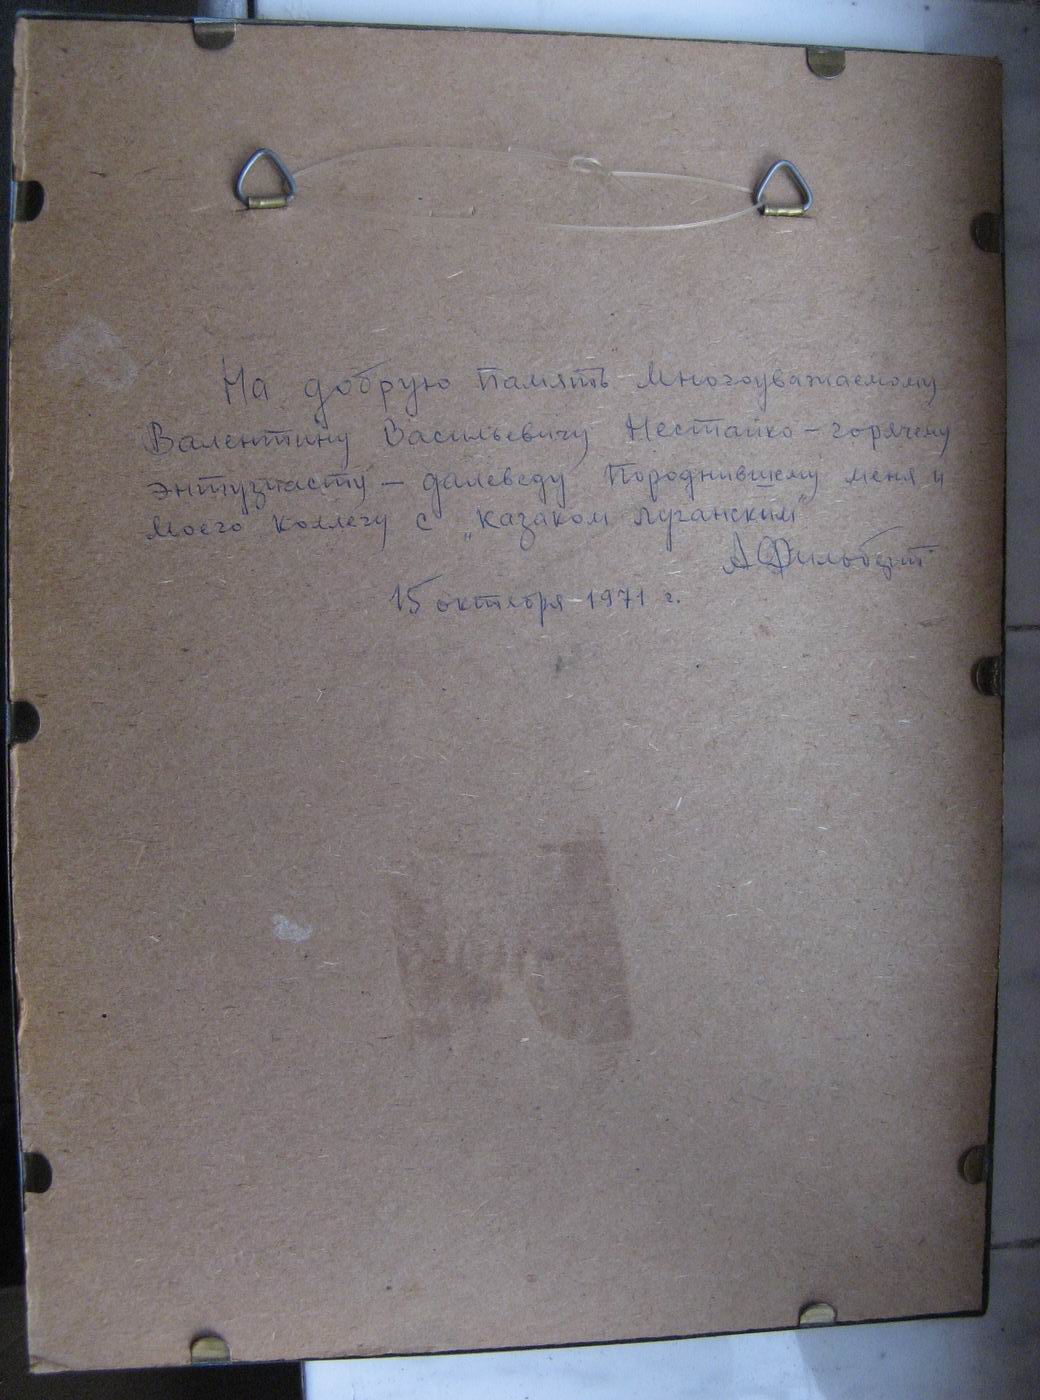 На добрую память Многоуважаемому
Валентину Васильевичу Нестайко – горячему
энтузиасту – далеведу Породнившему меня и
моего коллегу с „казаком луганским"
А Фильберт
15 октября 1971 г.